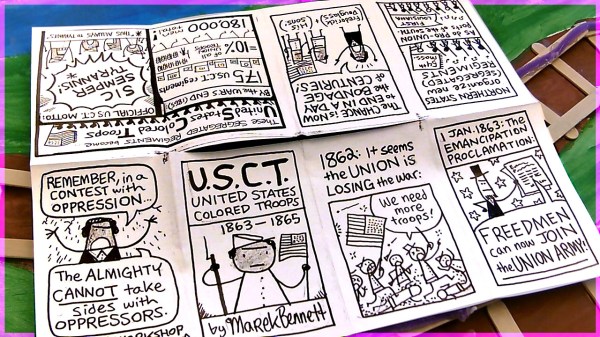 REMEMBER, in a
CONTEST with
OPPRESSION...
The ALMIGHTY
CANNOT take
sides with
OPPRESSORS.
WORKSHOP
U.S.C.T.
UNITED STATES
COLORED TROOPS
1863–1865
by Marek Bennett
1862: It seems
the UNION is
LOSING the war:
We need
more
troops!
1 JAN. 1863: The
EMANCIPATION
PROCLAMATION:
FREEDMEN
can now JOIN
the UNION ARMY!
NORTHERN STATES
organize new
(SEGREGATED)
REGIMENTS
As do PRO-UNION
parts of the SOUTH
FIRST
LOUISIANA
The CHANCE is NOW
TO END IN A DAY
the BONDAGE
of CENTURIES!
Frederick
Douglass +
His
Sons:
THESE SEGREGATED REGIMENTS become
United States Colored Troops
BY the WAR'S END (1865)
175 U.S.C.T. regiments
=10% of all
UNION
TROOPS
180,000
OFFICIAL U.S.C.T. MOTTO:
SIC
SEMPER
TYRANNIS!
"THUS ALWAYS to TYRANTS"